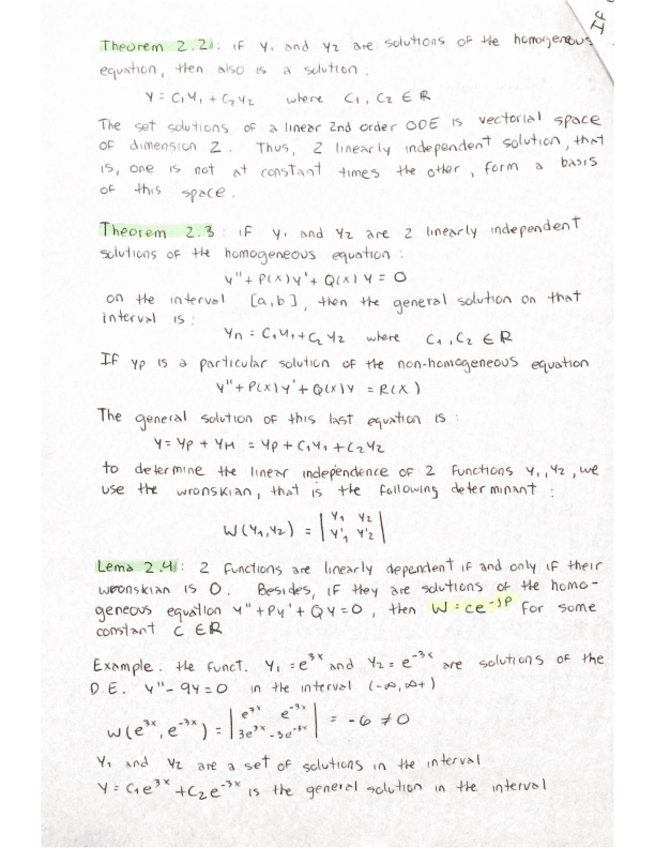 If
Theorem 2.2: if y₁ and y₂ are solutions of the homogeneous
equation, then also is a solution:
y = C₁y₁ + C₂y₂ where C₁, C₂ ∈ ℝ
The set solutions of a linear 2nd order ODE is vectorial space
of dimension 2. Thus, 2 linearly independent solution, that
is, one is not at constant times the other, form a basis
of this space.
Theorem 2.3: if y₁ and y₂ are 2 linearly independent
solutions of the homogeneous equation:
y'' + P(x)y' + Q(x)y = 0
on the interval [a,b], then the general solution on that
interval is:
yₙ = C₁y₁ + C₂y₂ where C₁, C₂ ∈ ℝ
If yp is a particular solution of the non-homogeneous equation
y'' + P(x)y' + Q(x)y = R(x)
The general solution of this last equation is:
y = yp + yH = yp + C₁y₁ + C₂y₂
to determine the linear independence of 2 functions y₁, y₂, we
use the wronskian, that is the following determinant:
W(y₁,y₂) = | y₁ y₂ |
| y'₁ y'₂ |
Lema 2.4: 2 functions are linearly dependent if and only if their
wronskian is 0. Besides, if they are solutions of the homo-
geneous equation y'' + Py' + Qy = 0, then W = ce^-∫P for some
constant C ∈ ℝ
Example. the funct. y₁ = e^3x and y₂ = e^-3x are solutions of the
D.E. y'' - 9y = 0 in the interval (-∞, ∞+)
W(e^3x, e^-3x) = | e^3x e^-3x | = -6 ≠ 0
| 3e^3x -3e^-3x |
y₁ and y₂ are a set of solutions in the interval
y = C₁e^3x + C₂e^-3x is the general solution in the interval